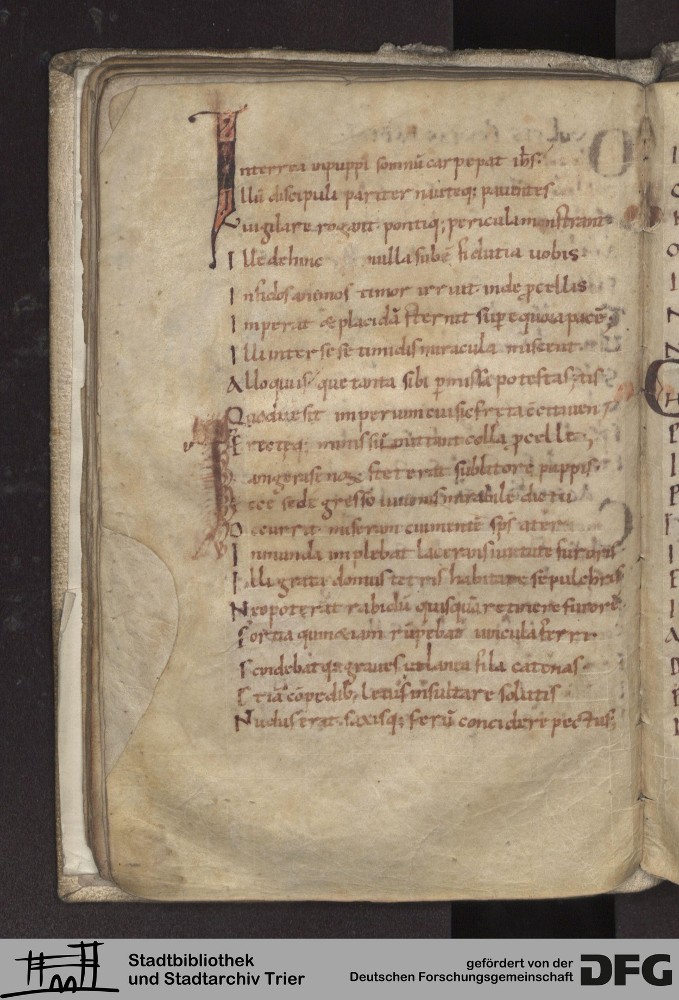 Interea in puppi somnū carpebat ih̄s.
Illū discipuli pariter nauteq; pauentes
Euigilare rogant. pontiq; pericula monstrant
Ille dehinc nulla subē fidutia uobis
Infidos animos timor irruit. inde p̄cellis
Imperat & placidā sternit sup equora pacē,
Illi inter sese timidis miracula miscent
Alloquiis. que tanta sibi pmissa potestas,
Quodue sit imperium cui sic freta
Et teteq; colla p̄celle,
steterat sublitore puppis.
Ecce sed egresso luminis mirabile dictu
Occurrit miserum cui mentē sp̄s ater
Inmunda implebat laceranis uirtute furoris
Illi grata domus tetris habitare sepulchris
Nec poterat rabidū quisquā retinere furorē
Fortia quin etiam rūpebat uincula ferri
Scindebat q; graues uelanea fila catenas
Etiā cōpedib; letus insultare solutis
Nudus erat. saxisq; ferū concidere pectus,
Stadtbibliothek
und Stadtarchiv Trier
gefördert von der
Deutschen Forschungsgemeinschaft
DFG